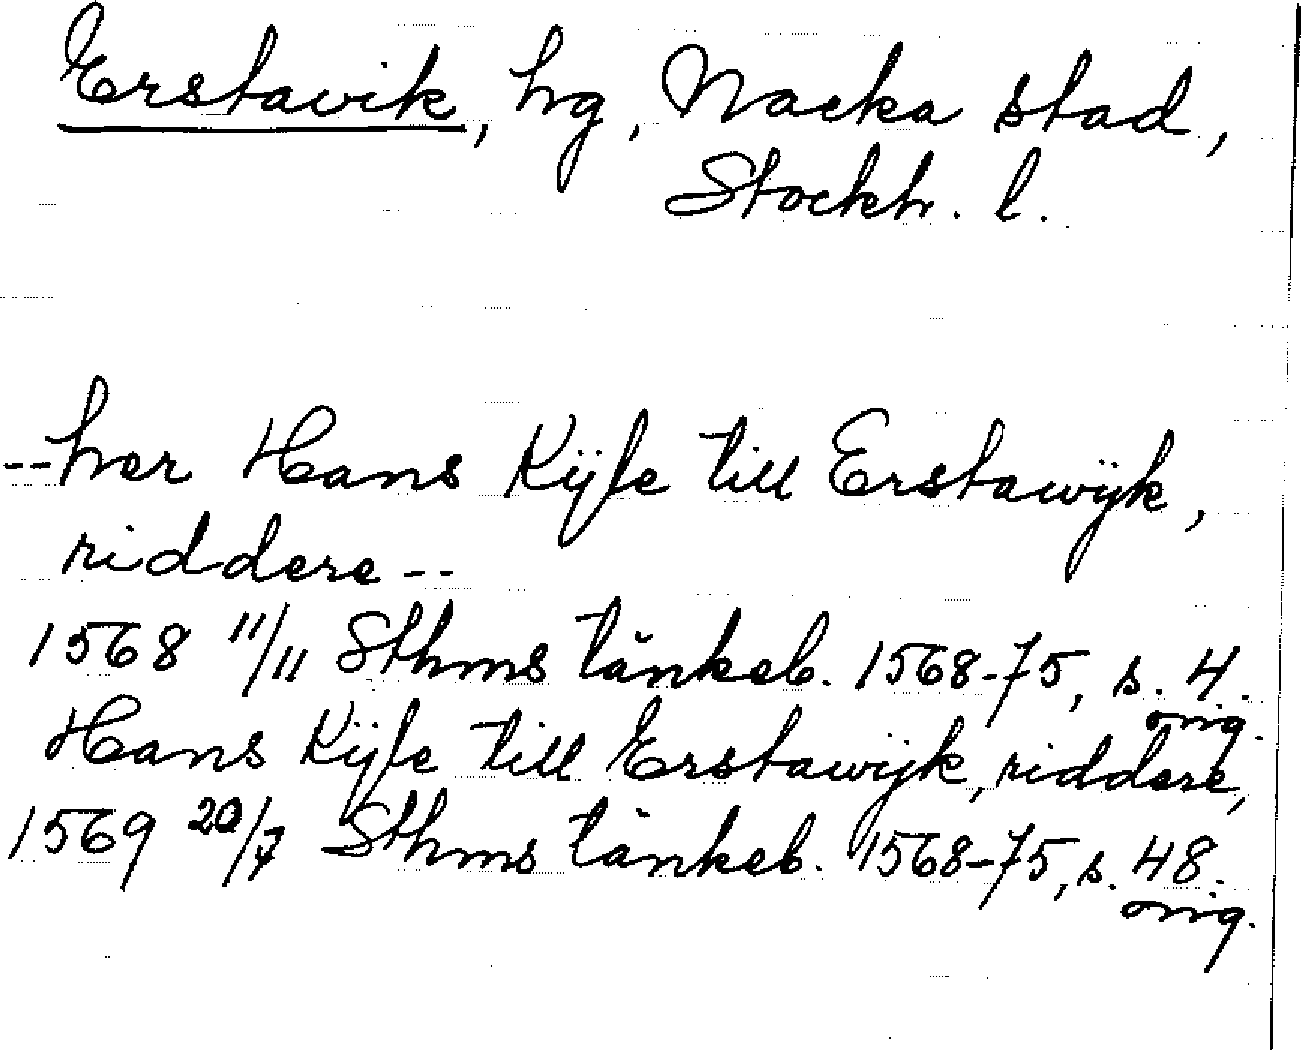 Erstavik, hg, Nacka stad,
Stockh. l.
--her Hans Kÿle till Erstawÿk,
riddere--
1568 11/11 Sthms tänkeb. 1568-75, s. 4.
orig.
Hans Kÿle till Erstawÿk, riddere,
1569 20/7 Sthms tänkeb. 1568-75, s. 48.
orig.